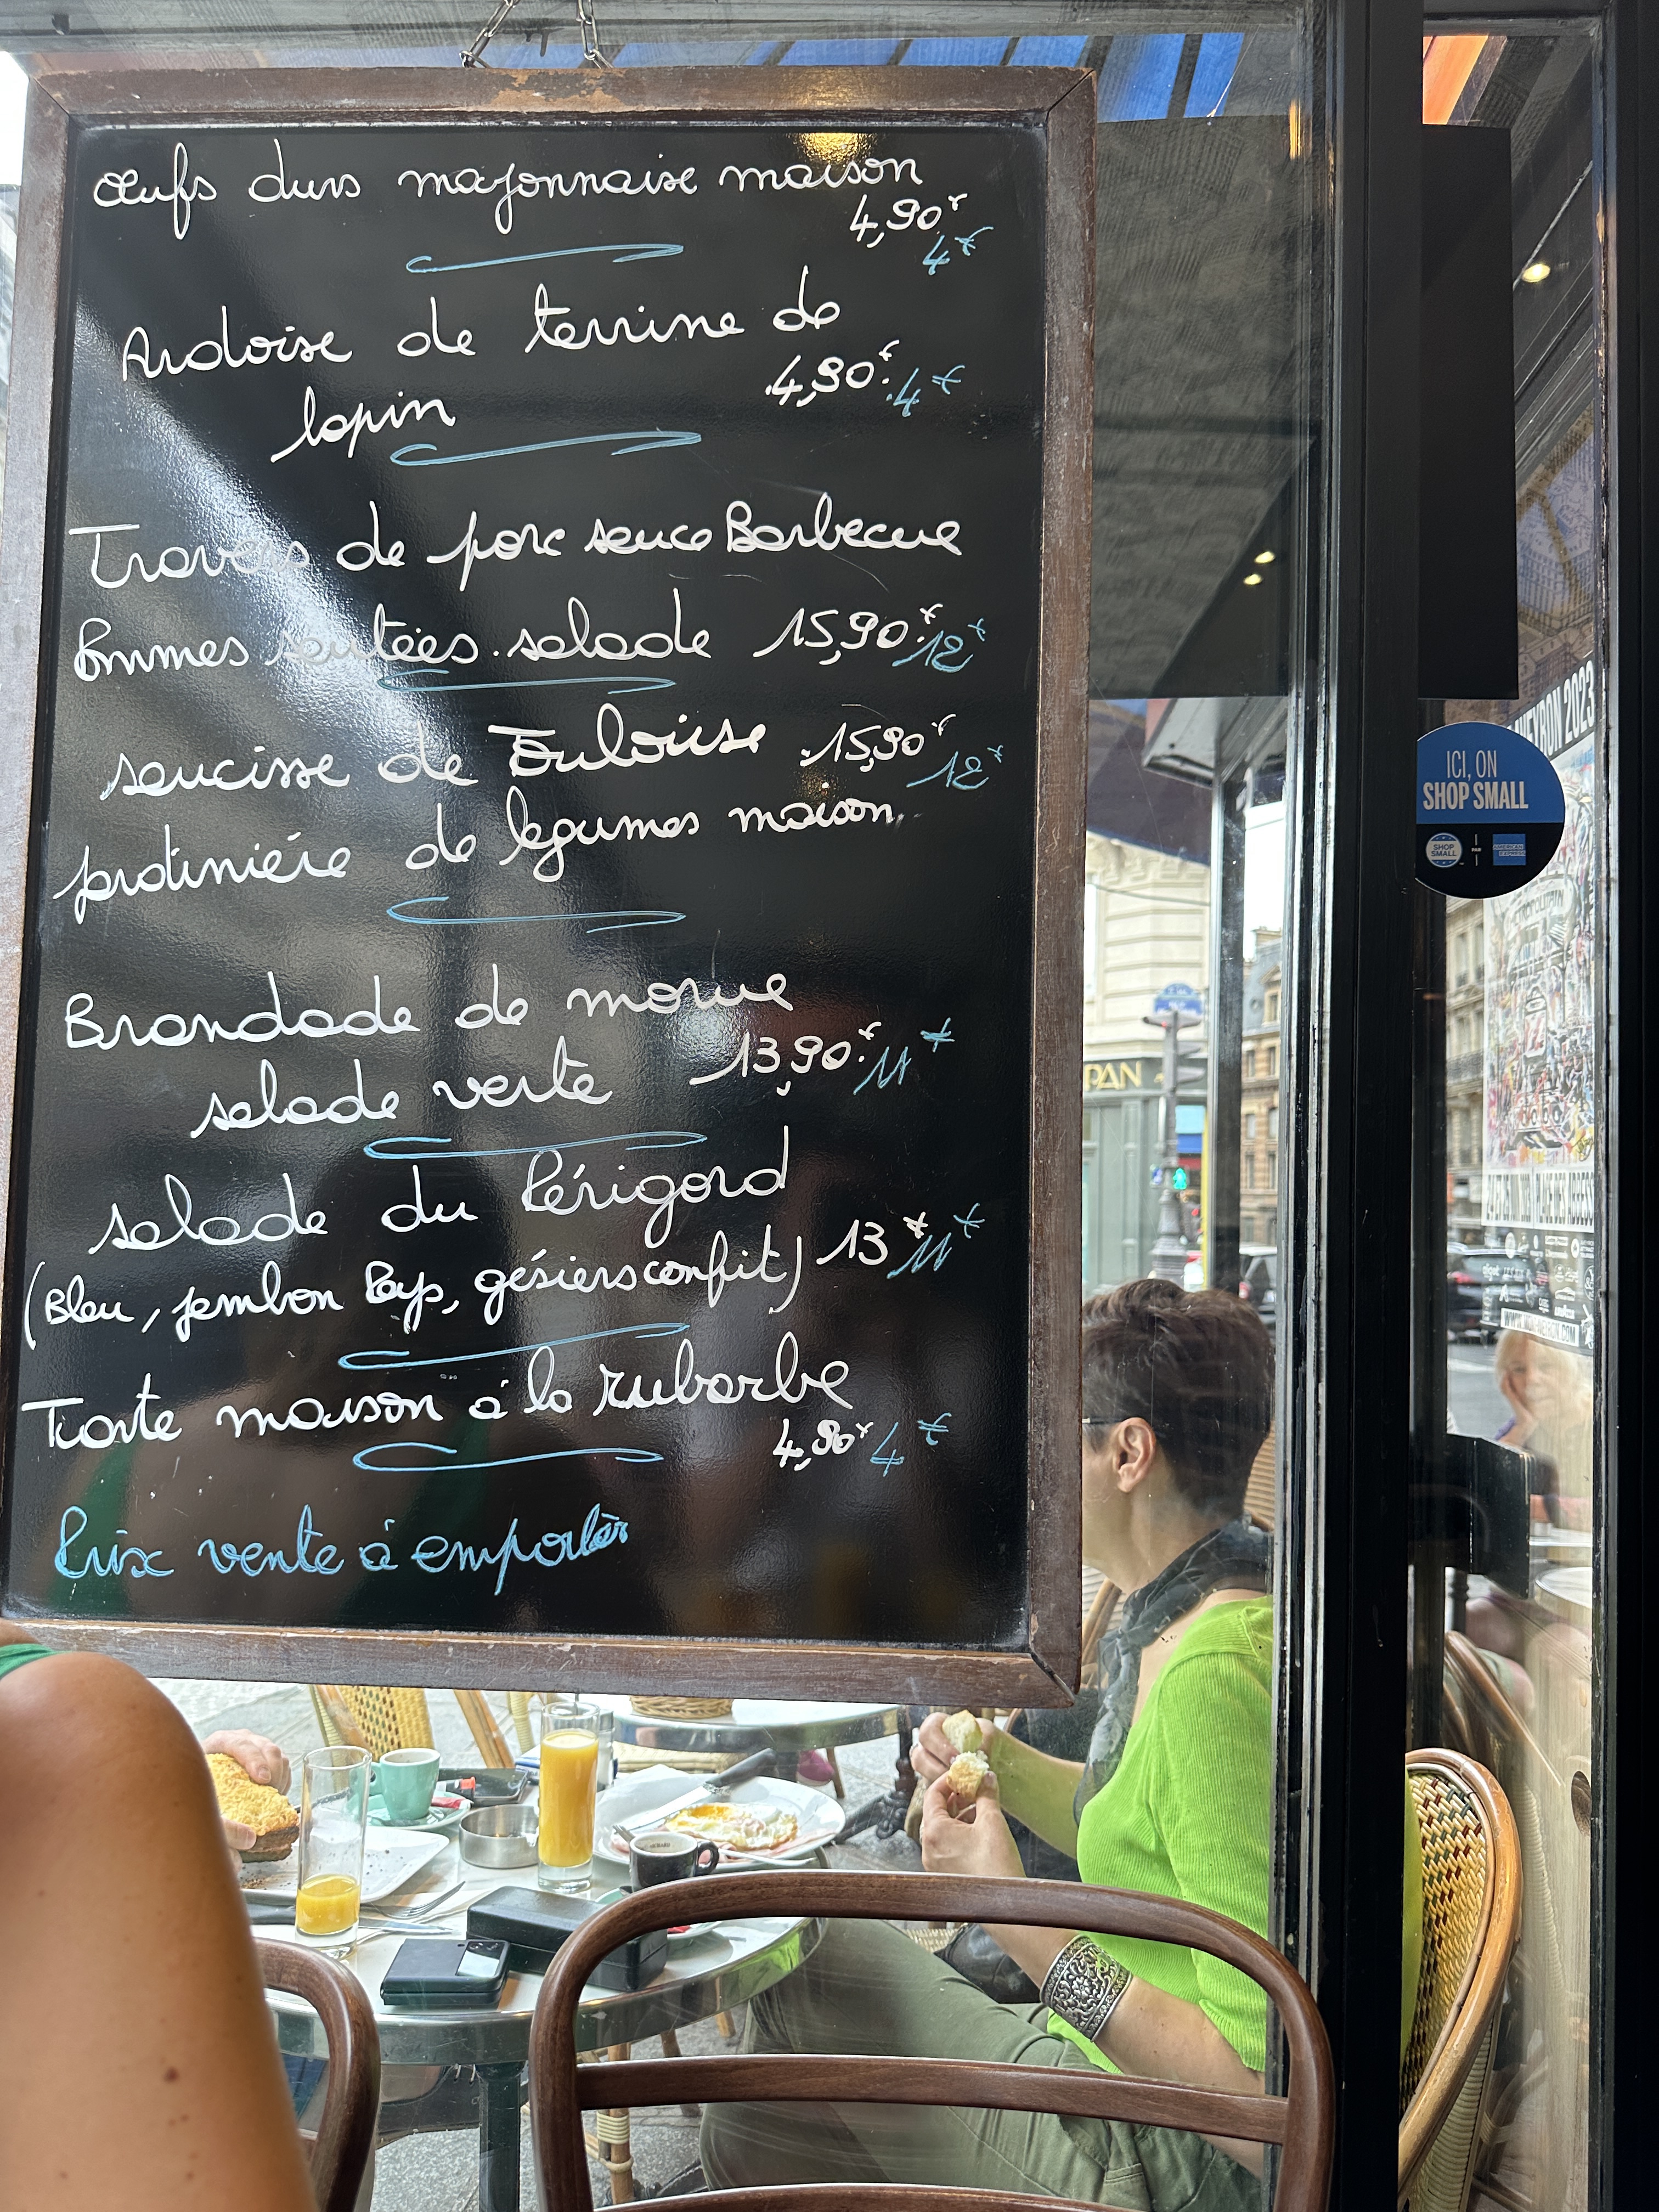 œufs durs mayonnaise maison
4,90€
4€
Ardoise de terrine de
lapin
4,90€ 4€
Travers de porc sauce Barbecue
Pommes sautées salade 15,90€ 12€
saucisse de Toulouse 15,90€ 12€
jardinière de légumes maison
Brandade de morue
salade verte 13,90€ 11€
salade du Périgord
(Bleu, jambon Pays, gésiers confit) 13€ 11€
Tarte maison à la rubarbe
4,90€ 4€
Prix vente à emporter
ICI, ON
SHOP SMALL
SHOP
SMALL
PAR
AMERICAN
EXPRESS
PAN
2023